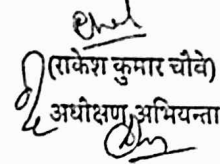 (राकेश कुमार चौवे)
अधीक्षण अभियन्ता